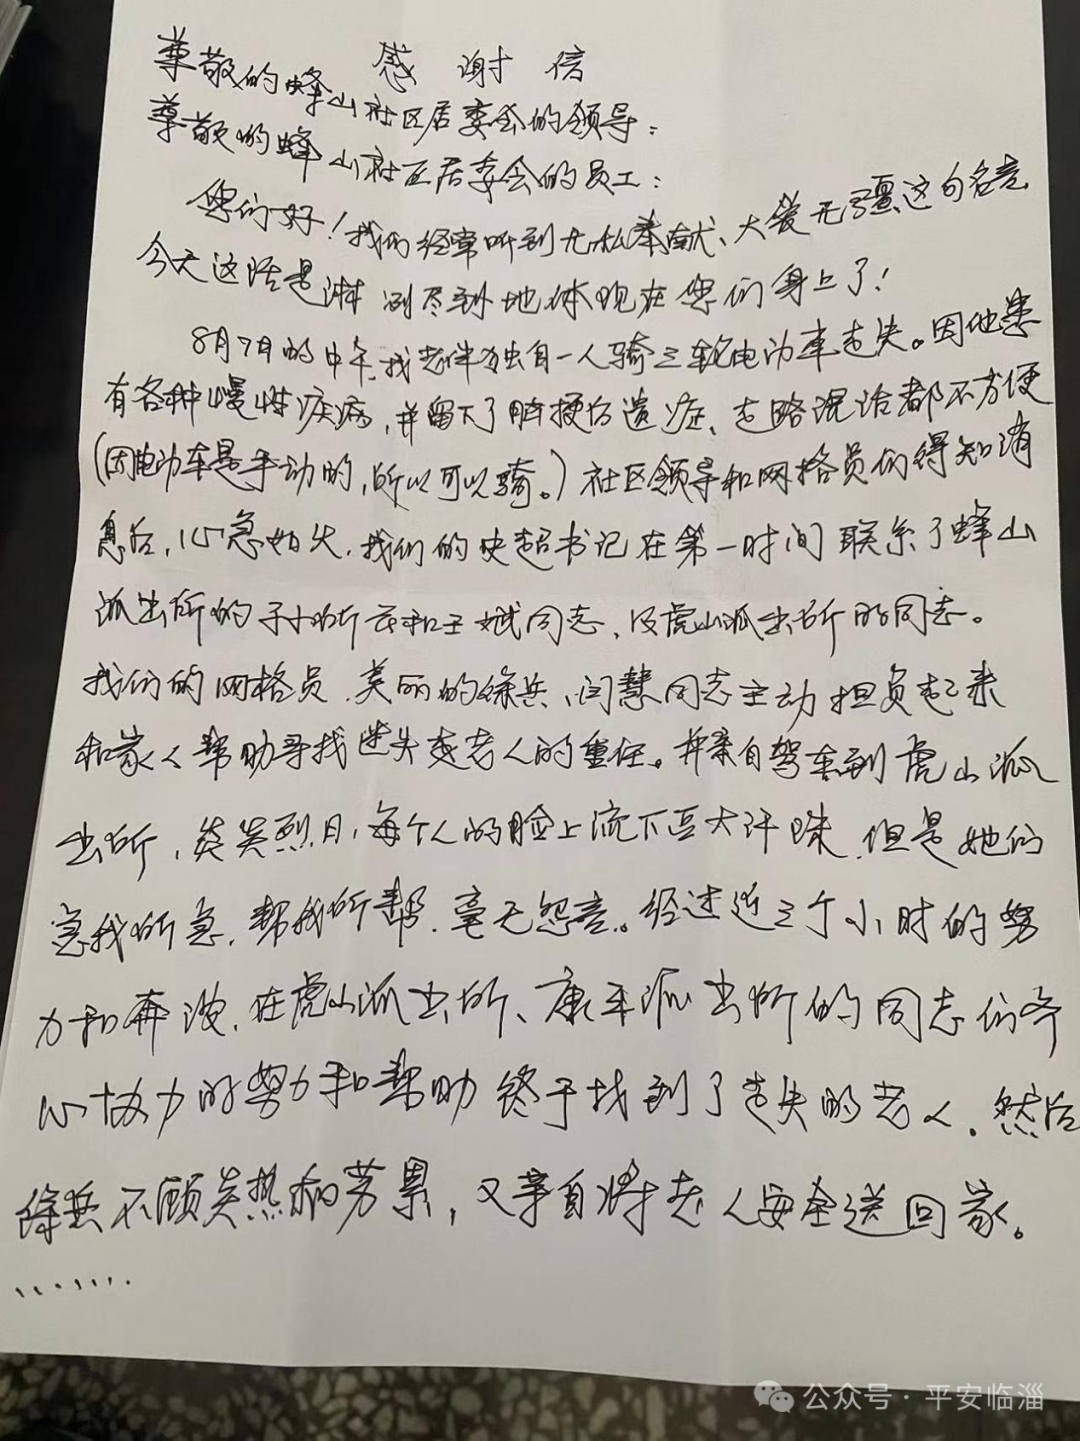 感谢信
尊敬的蜂山社区居委会的领导：
尊敬的蜂山社区居委会的员工：
您们好！我们经常听到无私奉献、大爱无疆这句名言
今天这话是淋漓尽到地体现在您们身上了！
8月7日的中午，我老伴独自一人骑三轮电动车走失。因他患
有各种慢性疾病，并留下了脑梗后遗症、走路说话都不方便
（因电动车是手动的，所以可以骑。）社区领导和网格员们得知消
息后，心急如火，我们的史超书记在第一时间联系了蜂山
派出所的 和王斌同志、及虎山派出所的同志。
我们的网格员、美丽的徐兵、闫慧同志主动担负起来
和家人帮助寻找迷失走老人的重任。并亲自驾车到虎山派
出所，炎炎烈日，每个人的脸上流下豆大汗珠，但是她们
急我所急，帮我所帮，毫无怨言。经过近三个小时的努
力和奔波，在虎山派出所、康平派出所的同志们齐
心协力的努力和帮助终于找到了走失的老人。然后
徐兵不顾炎热和劳累，又亲自将老人安全送回家。
.......
公众号·平安临淄